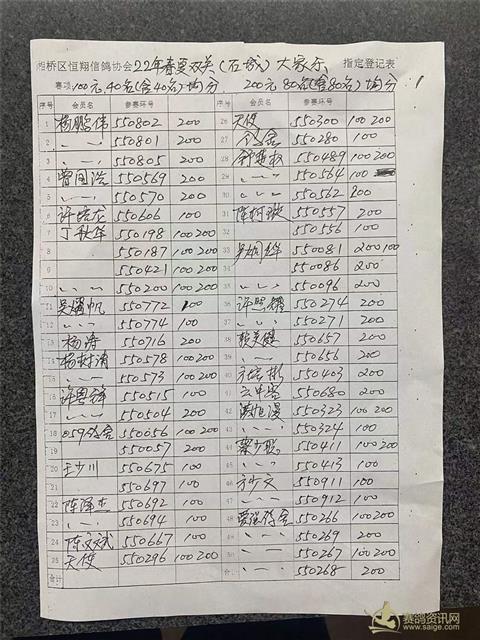 湘桥区恒翔信鸽协会22年春夏双关(石城)大家乐 指定登记表
赛项100元40名(含40名)均分 200元80名(含80名)均分
序号 会员名 参赛环号 序号 会员名 参赛环号
1 杨鹏伟 550802 200 26 天使 550300 100 200
2 〃 550801 200 27 550280 100
3 〃 550805 200 28 550489 100 200
4 曾国浩 550569 200 29 〃 550564 100
5 〃 550570 200 30 〃 550562 200
6 许培龙 550606 100 31 陈柯璇 550557 200
7 丁秋华 550198 100 200 32 550556 100
8 550187 100 200 33 550081 200 100
9 550421 100 200 34 550086 200
10 〃 550200 100 200 35 〃 550096 200
11 吴耀帆 550772 100 36 许思耀 550274 200
12 〃 550774 100 37 〃 550271 200
13 杨涛 550716 200 38 550657 200
14 杨树清 550578 100 200 39 〃 550656 200
15 〃 550573 100 200 40 方宏彬 550403 200
16 许贵锋 550515 100 41 云中客 550680 200
17 〃 550504 200 42 550323 100 200
18 059鸽舍 550056 100 200 43 〃 550344 100 200
19 550057 200 44 蔡少聪 550411 100 200
20 王少川 550675 100 45 〃 550413 100
21 550697 100 46 方少文 550911 100
22 陈泽杰 550692 100 47 〃 550912 100
23 〃 550694 100 48 鸽舍 550266 100 200
24 陈文斌 550667 100 49 〃 550269 200
25 天使 550296 100 200 50 〃 550267 100 200
合计 合计 〃 550268 200
赛鸽资讯网
www.saige.com